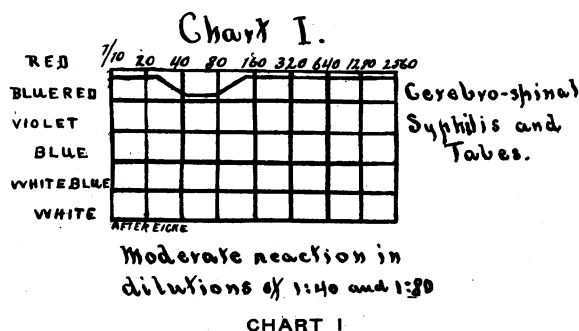 Chart I.
RED 1/10 20 40 80 160 320 640 1280 2560
BLUERED
VIOLET
BLUE
WHITEBLUE
WHITE
AFTER EICKE
Cerebro-spinal
Syphilis and
Tabes.
Moderate reaction in
dilutions of 1:40 and 1:80
CHART I